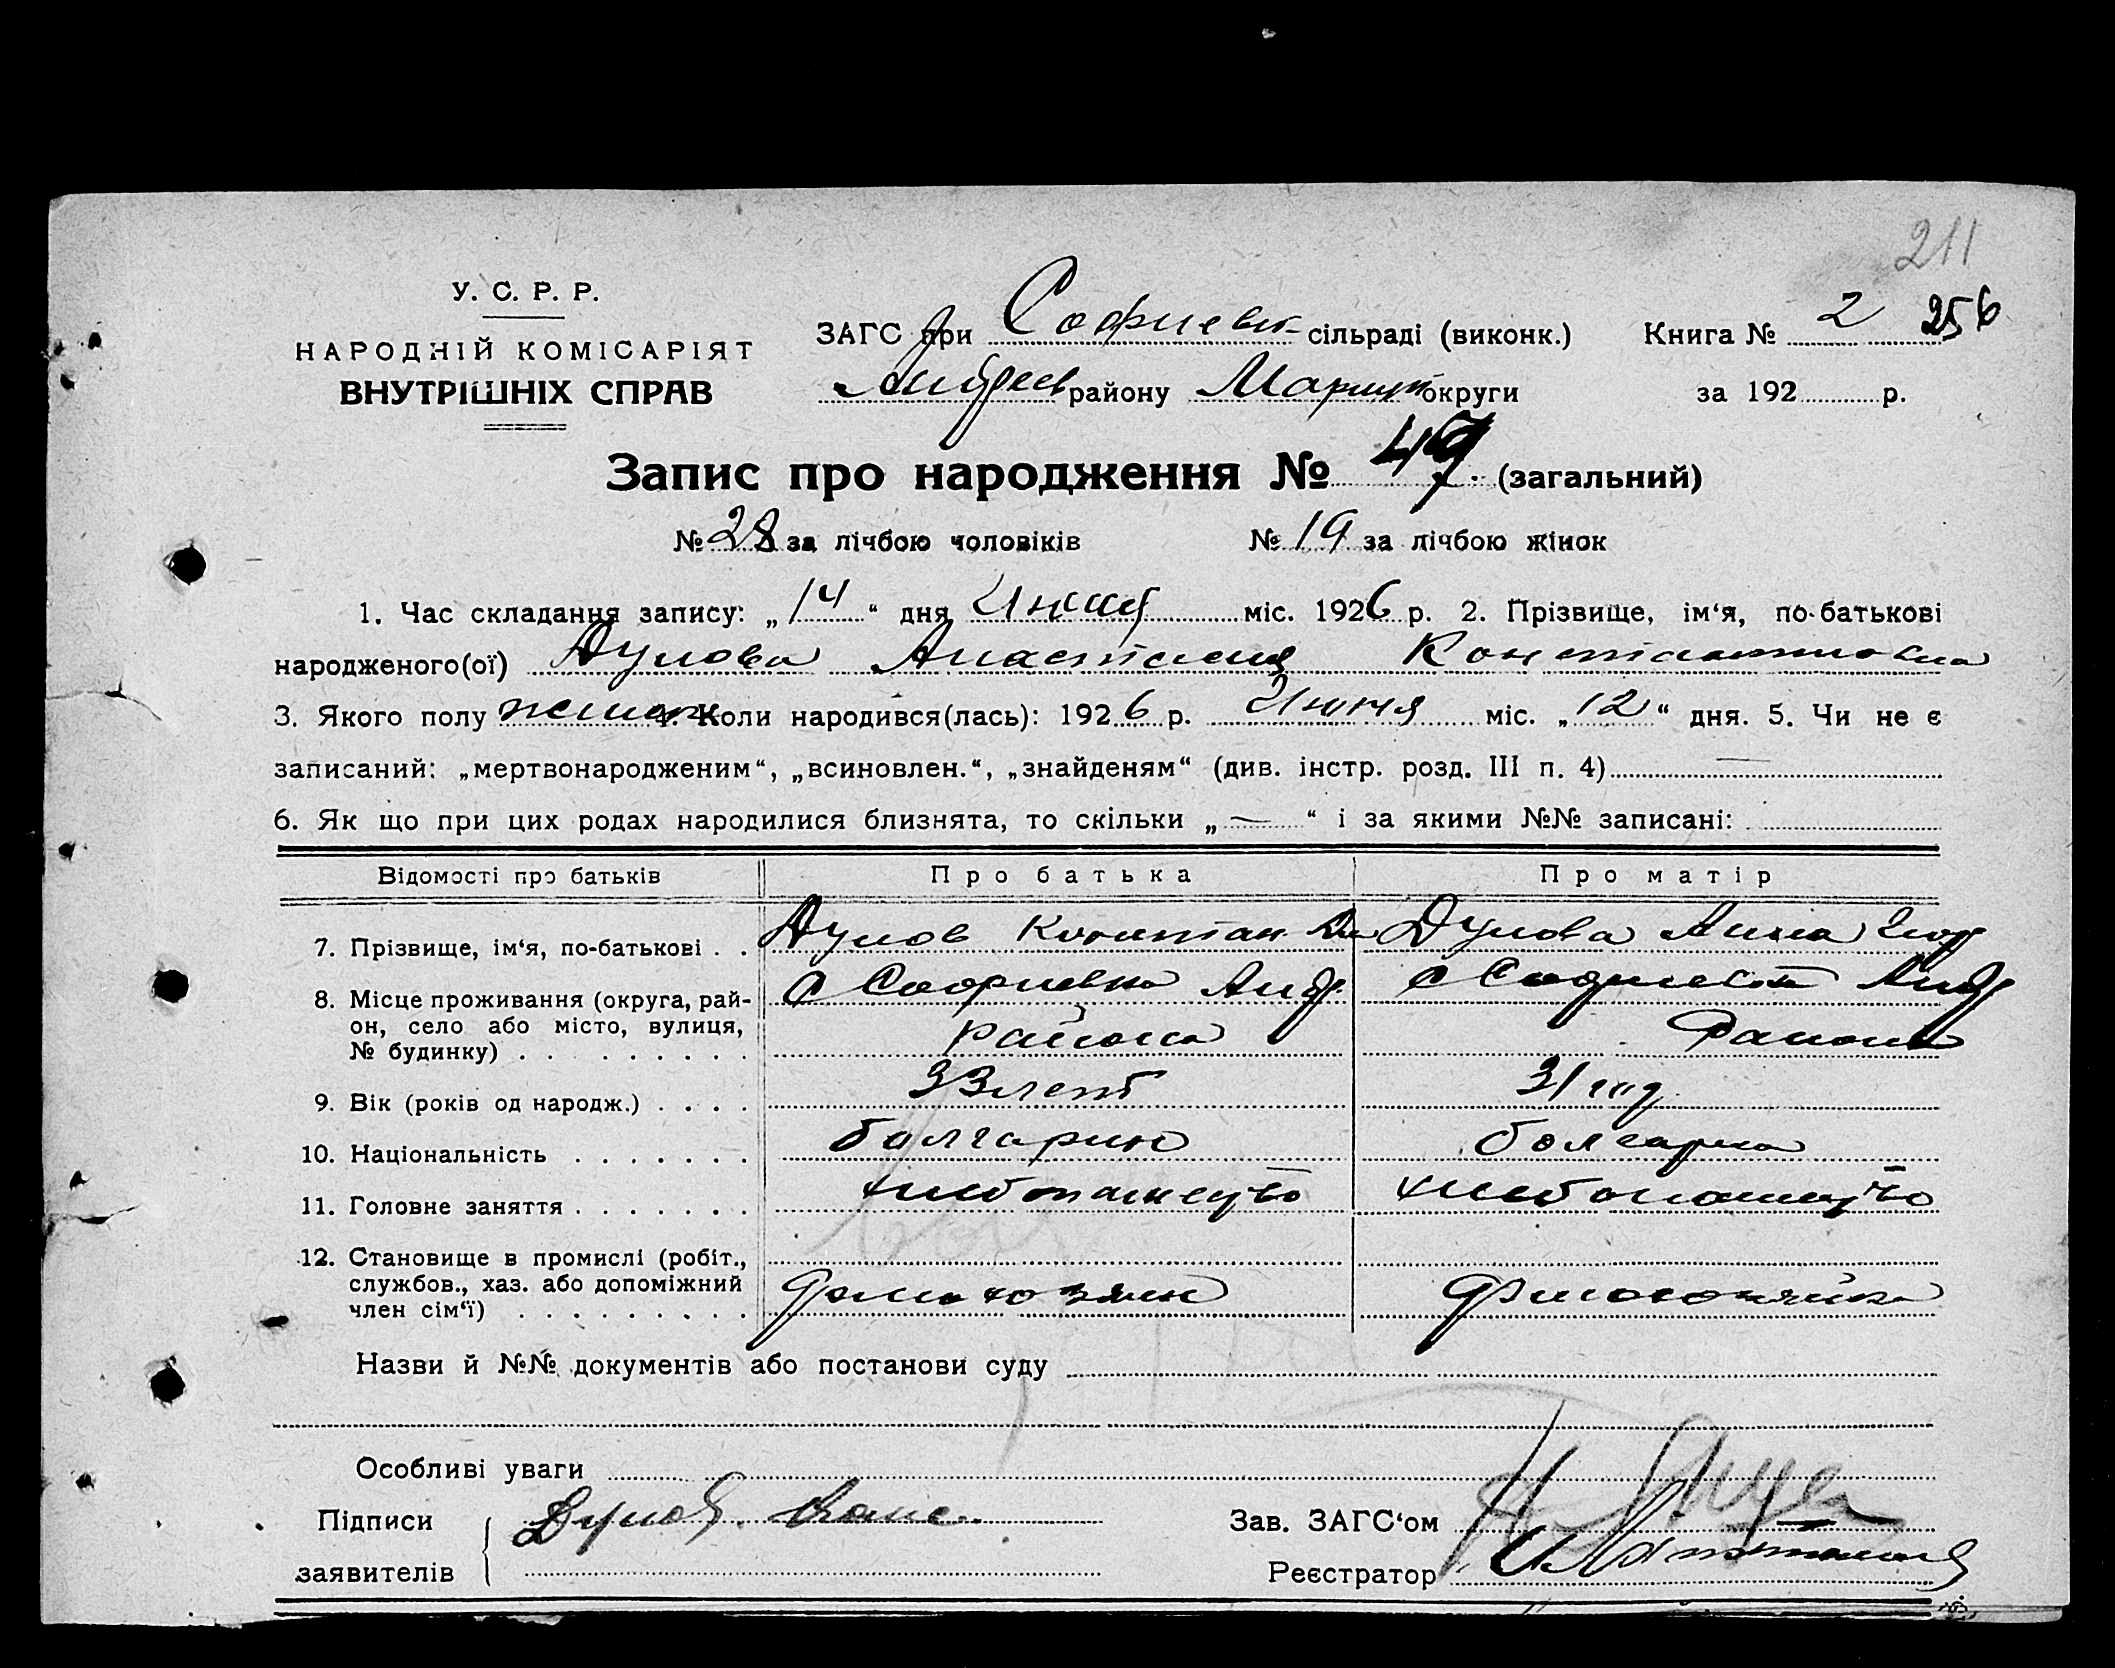 211
У. С. Р. Р.
НАРОДНІЙ КОМІСАРІЯТ
ВНУТРІШНІХ СПРАВ
ЗАГС при Софиевк сільраді (виконк.) Книга № 2 256
Андреев району Мариуп округи за 192 р.
Запис про народження № 47 (загальний)
№ 28 за лічбою чоловіків № 19 за лічбою жінок
1. Час складання запису: „14“ дня Июня міс. 1926 р. 2. Прізвище, ім‘я, по-батькові
народженого(ої) Дулова Анастасия Константиновна
3. Якого полу женск 4. Коли народився(лась): 1926 р. Июня міс. „12“ дня. 5. Чи не є
записаний: „мертвонародженим“, „всиновлен.“, „знайденям“ (див. інстр. розд. III п. 4) —
6. Як що при цих родах народилися близнята, то скільки „—“ і за якими №№ записані:
Відомості про батьків Про батька Про матір
7. Прізвище, ім‘я, по-батькові . . Дулов Констан Дулова Анна Геор
8. Місце проживання (округа, рай- с Софиевка Андр. с Софиевка Андр
он, село або місто, вулиця, района района
№ будинку) . . . . . . . . .
9. Вік (років од народж.) . . . . 33 лет 31 год
10. Національність . . . . . . . болгарин болгарка
11. Головне заняття . . . . . . . хлебопашество хлебопашество
12. Становище в промислі (робіт.,
службов., хаз. або допоміжний домохозяин домохозяйка
член сім‘ї) . . . . . . . . .
Назви й №№ документів або постанови суду
Особливі уваги
Підписи Дулов Конс Зав. ЗАГС‘ом
заявителів Реєстратор